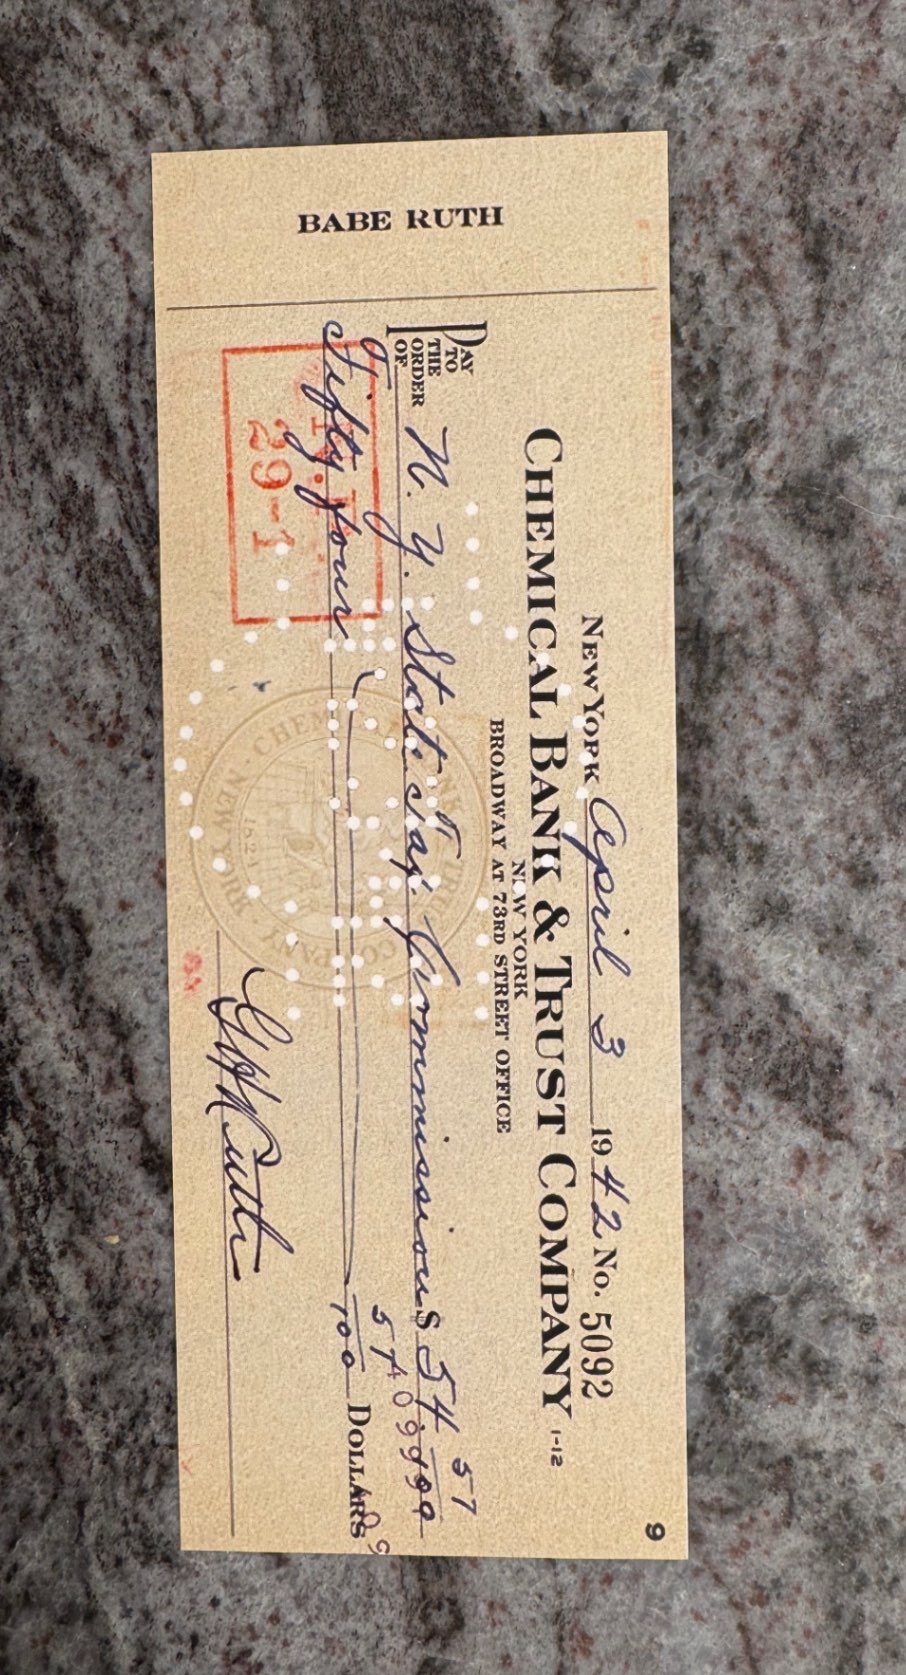 BABE RUTH
9
NEW YORK April 3 1942 No. 5092
CHEMICAL BANK & TRUST COMPANY 1-12
NEW YORK
BROADWAY AT 73RD STREET OFFICE
PAY TO THE ORDER OF N. Y. State Tax Commission $ 54 57
Fifty four 57/100 DOLLARS
29-1
CHEMICAL BANK & TRUST COMPANY NEW YORK
1824
GHRuth